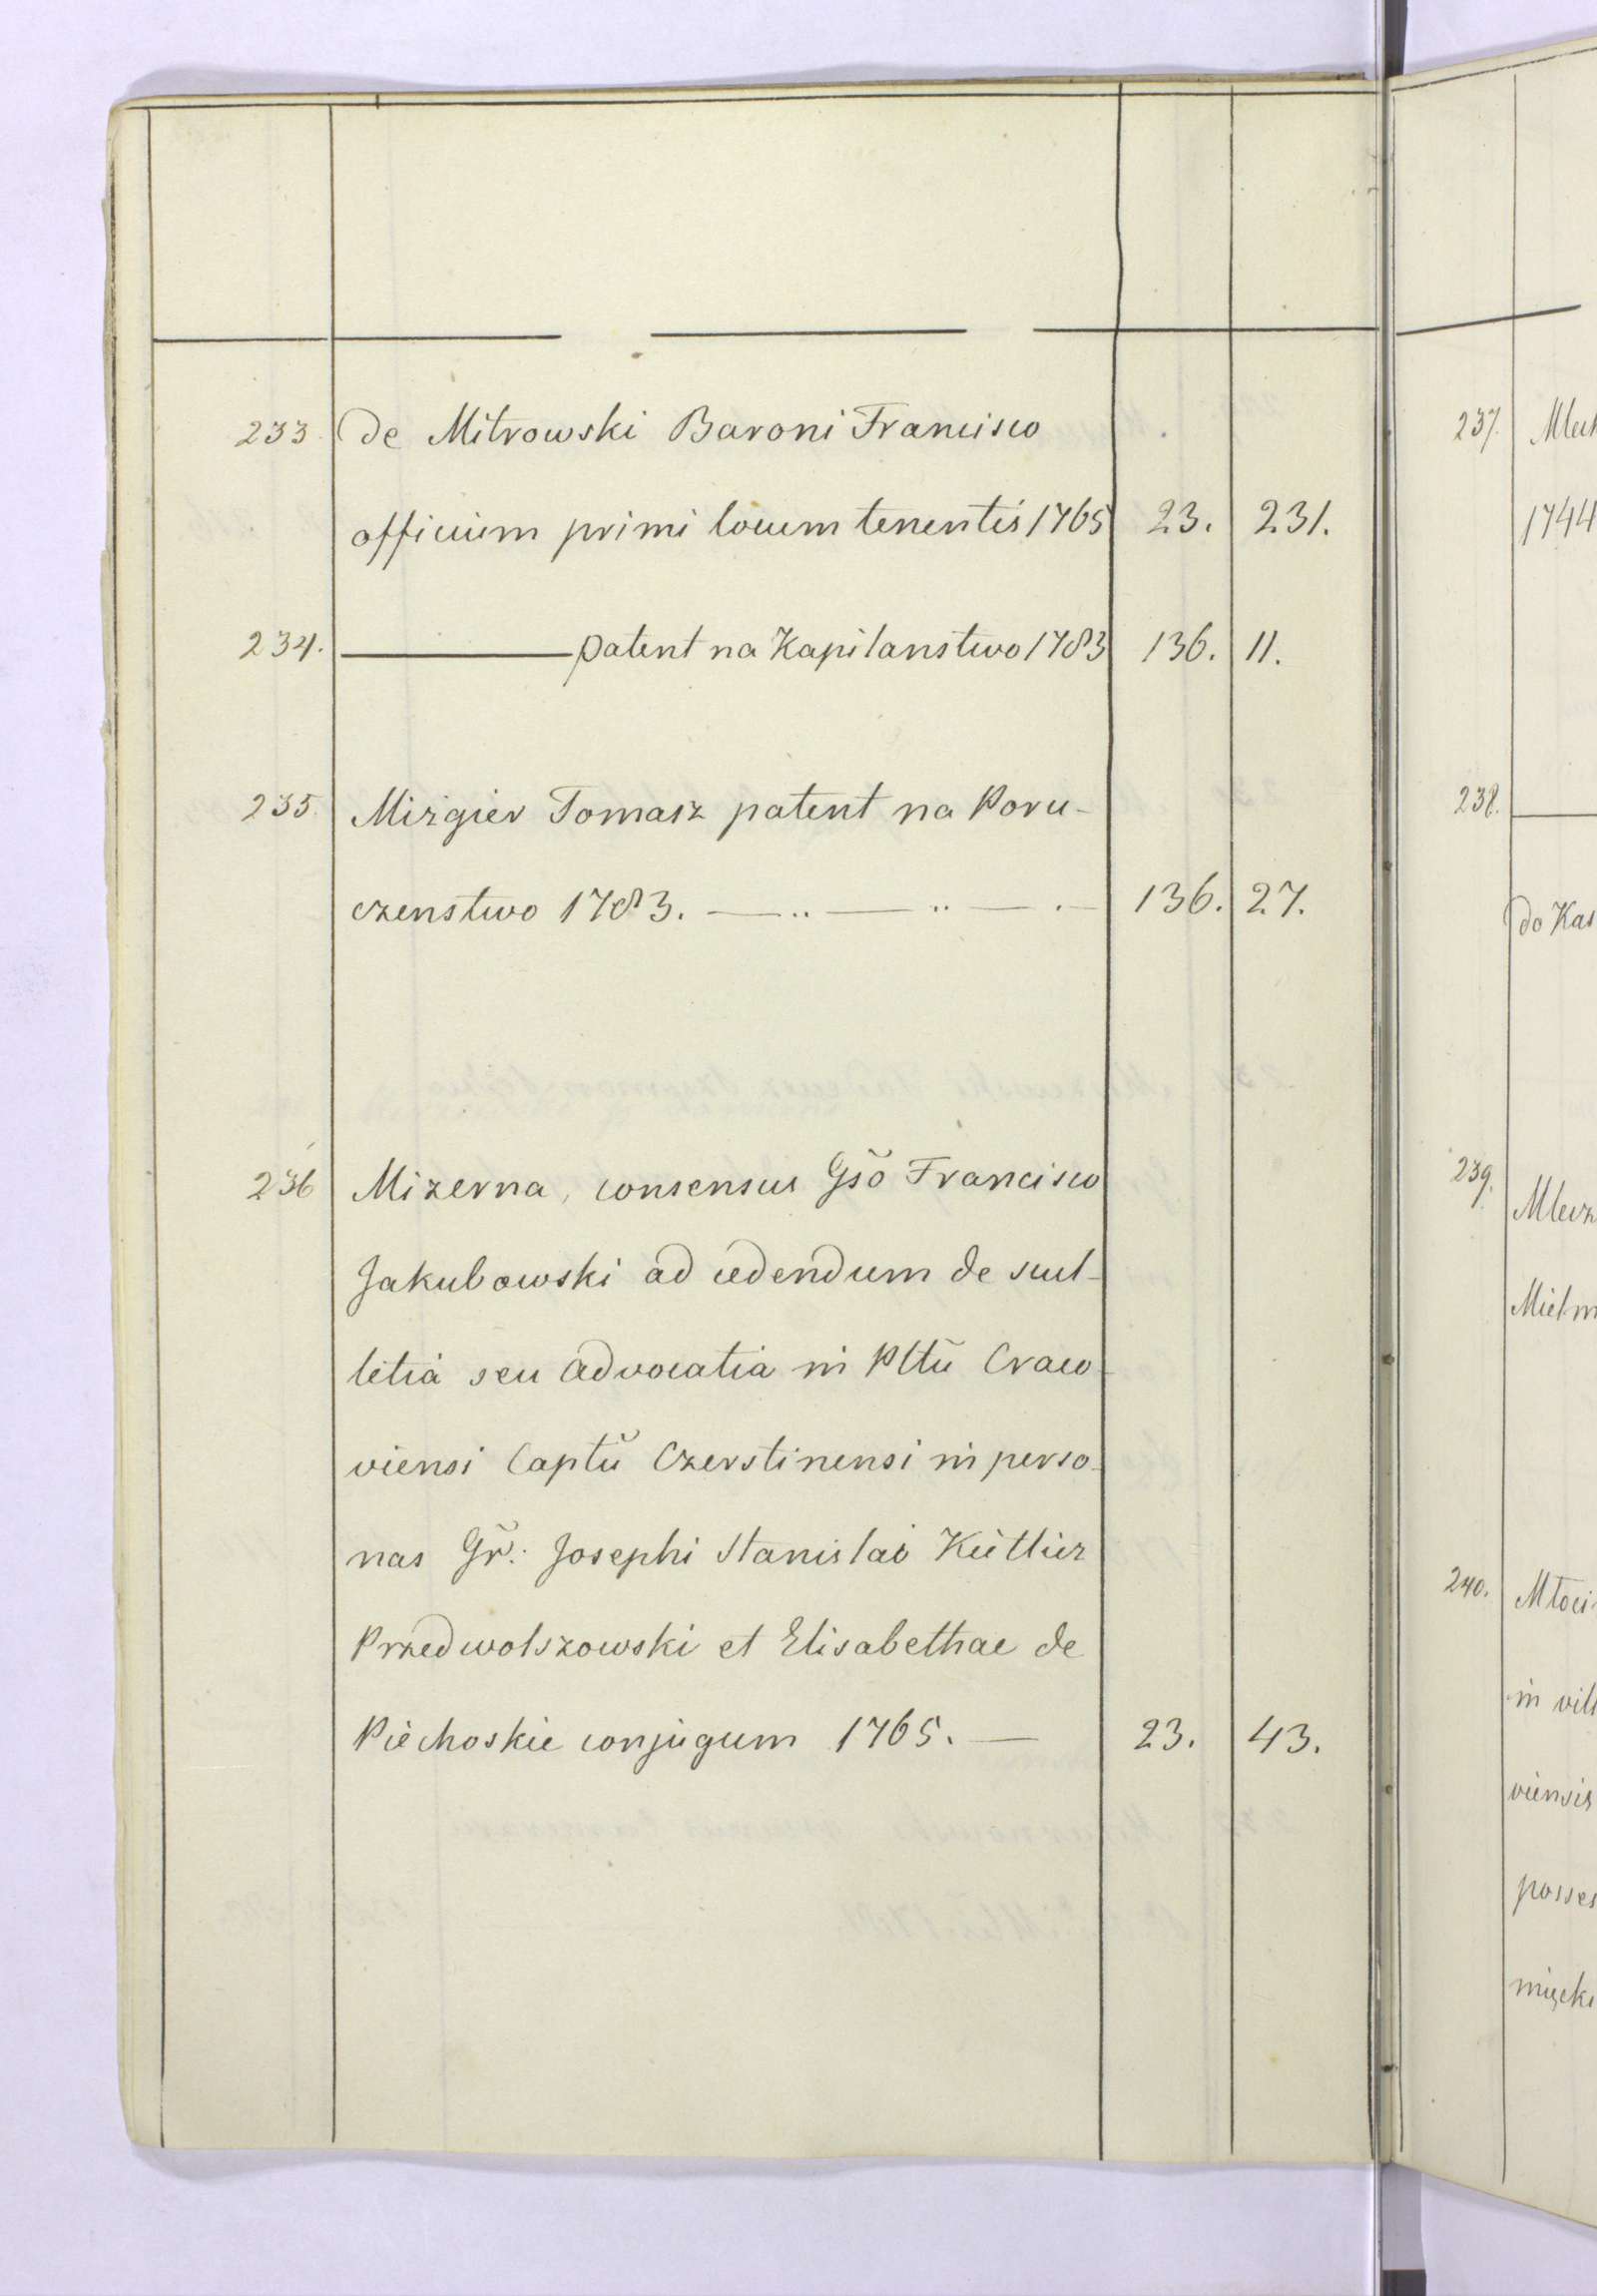 233. de Mitrowski Baroni Francisco
officium primi locum tenentis 1765 23. 231.
234. ——— patent na Kapitanstwo 1783 136. 11.
235. Mizgier Tomasz patent na Poru-
czenstwo 1783. —..—..—.— 136. 27.
236 Mizerna, consensus Gso Francisco
Jakubowski ad cedendum de scul-
tetia seu advocatia in Pltu Craco-
viensi Captu Czorstinensi in perso-
nas Gr: Josephi Stanislai
Przedwolszowski et Elisabethae de
Piechoskie conjugum 1765. — 23. 43.
237.
1744
238.
do Kas
239.
240.
in vill
viensis
posses